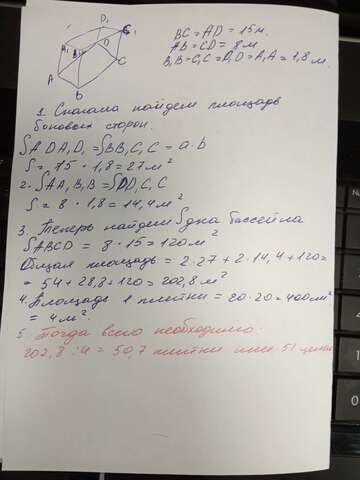 BC = AD = 15м.
AB = CD = 8м
B₁B = C₁C = D₁D = A₁A = 1,8 м.
A₁ B₁ C₁ D₁
A B C D
1. Сначала найдем площадь
боковых сторон.
SA₁DA₁D₁ = SBB₁C₁C = a·b
S = 15 · 1,8 = 27 м²
2. SAA₁B₁B = SDD₁C₁C
S = 8 · 1,8 = 14,4 м²
3. Теперь найдем S дна бассейна
SABCD = 8 · 15 = 120 м²
Общая площадь = 2·27 + 2·14,4 + 120 =
= 54 + 28,8 + 120 = 202,8 м²
4. Площадь 1 плитки = 20·20 = 400 м²
= 4 м².
5. Тогда всего необходимо:
202,8 : 4 = 50,7 плитки или 51 целая